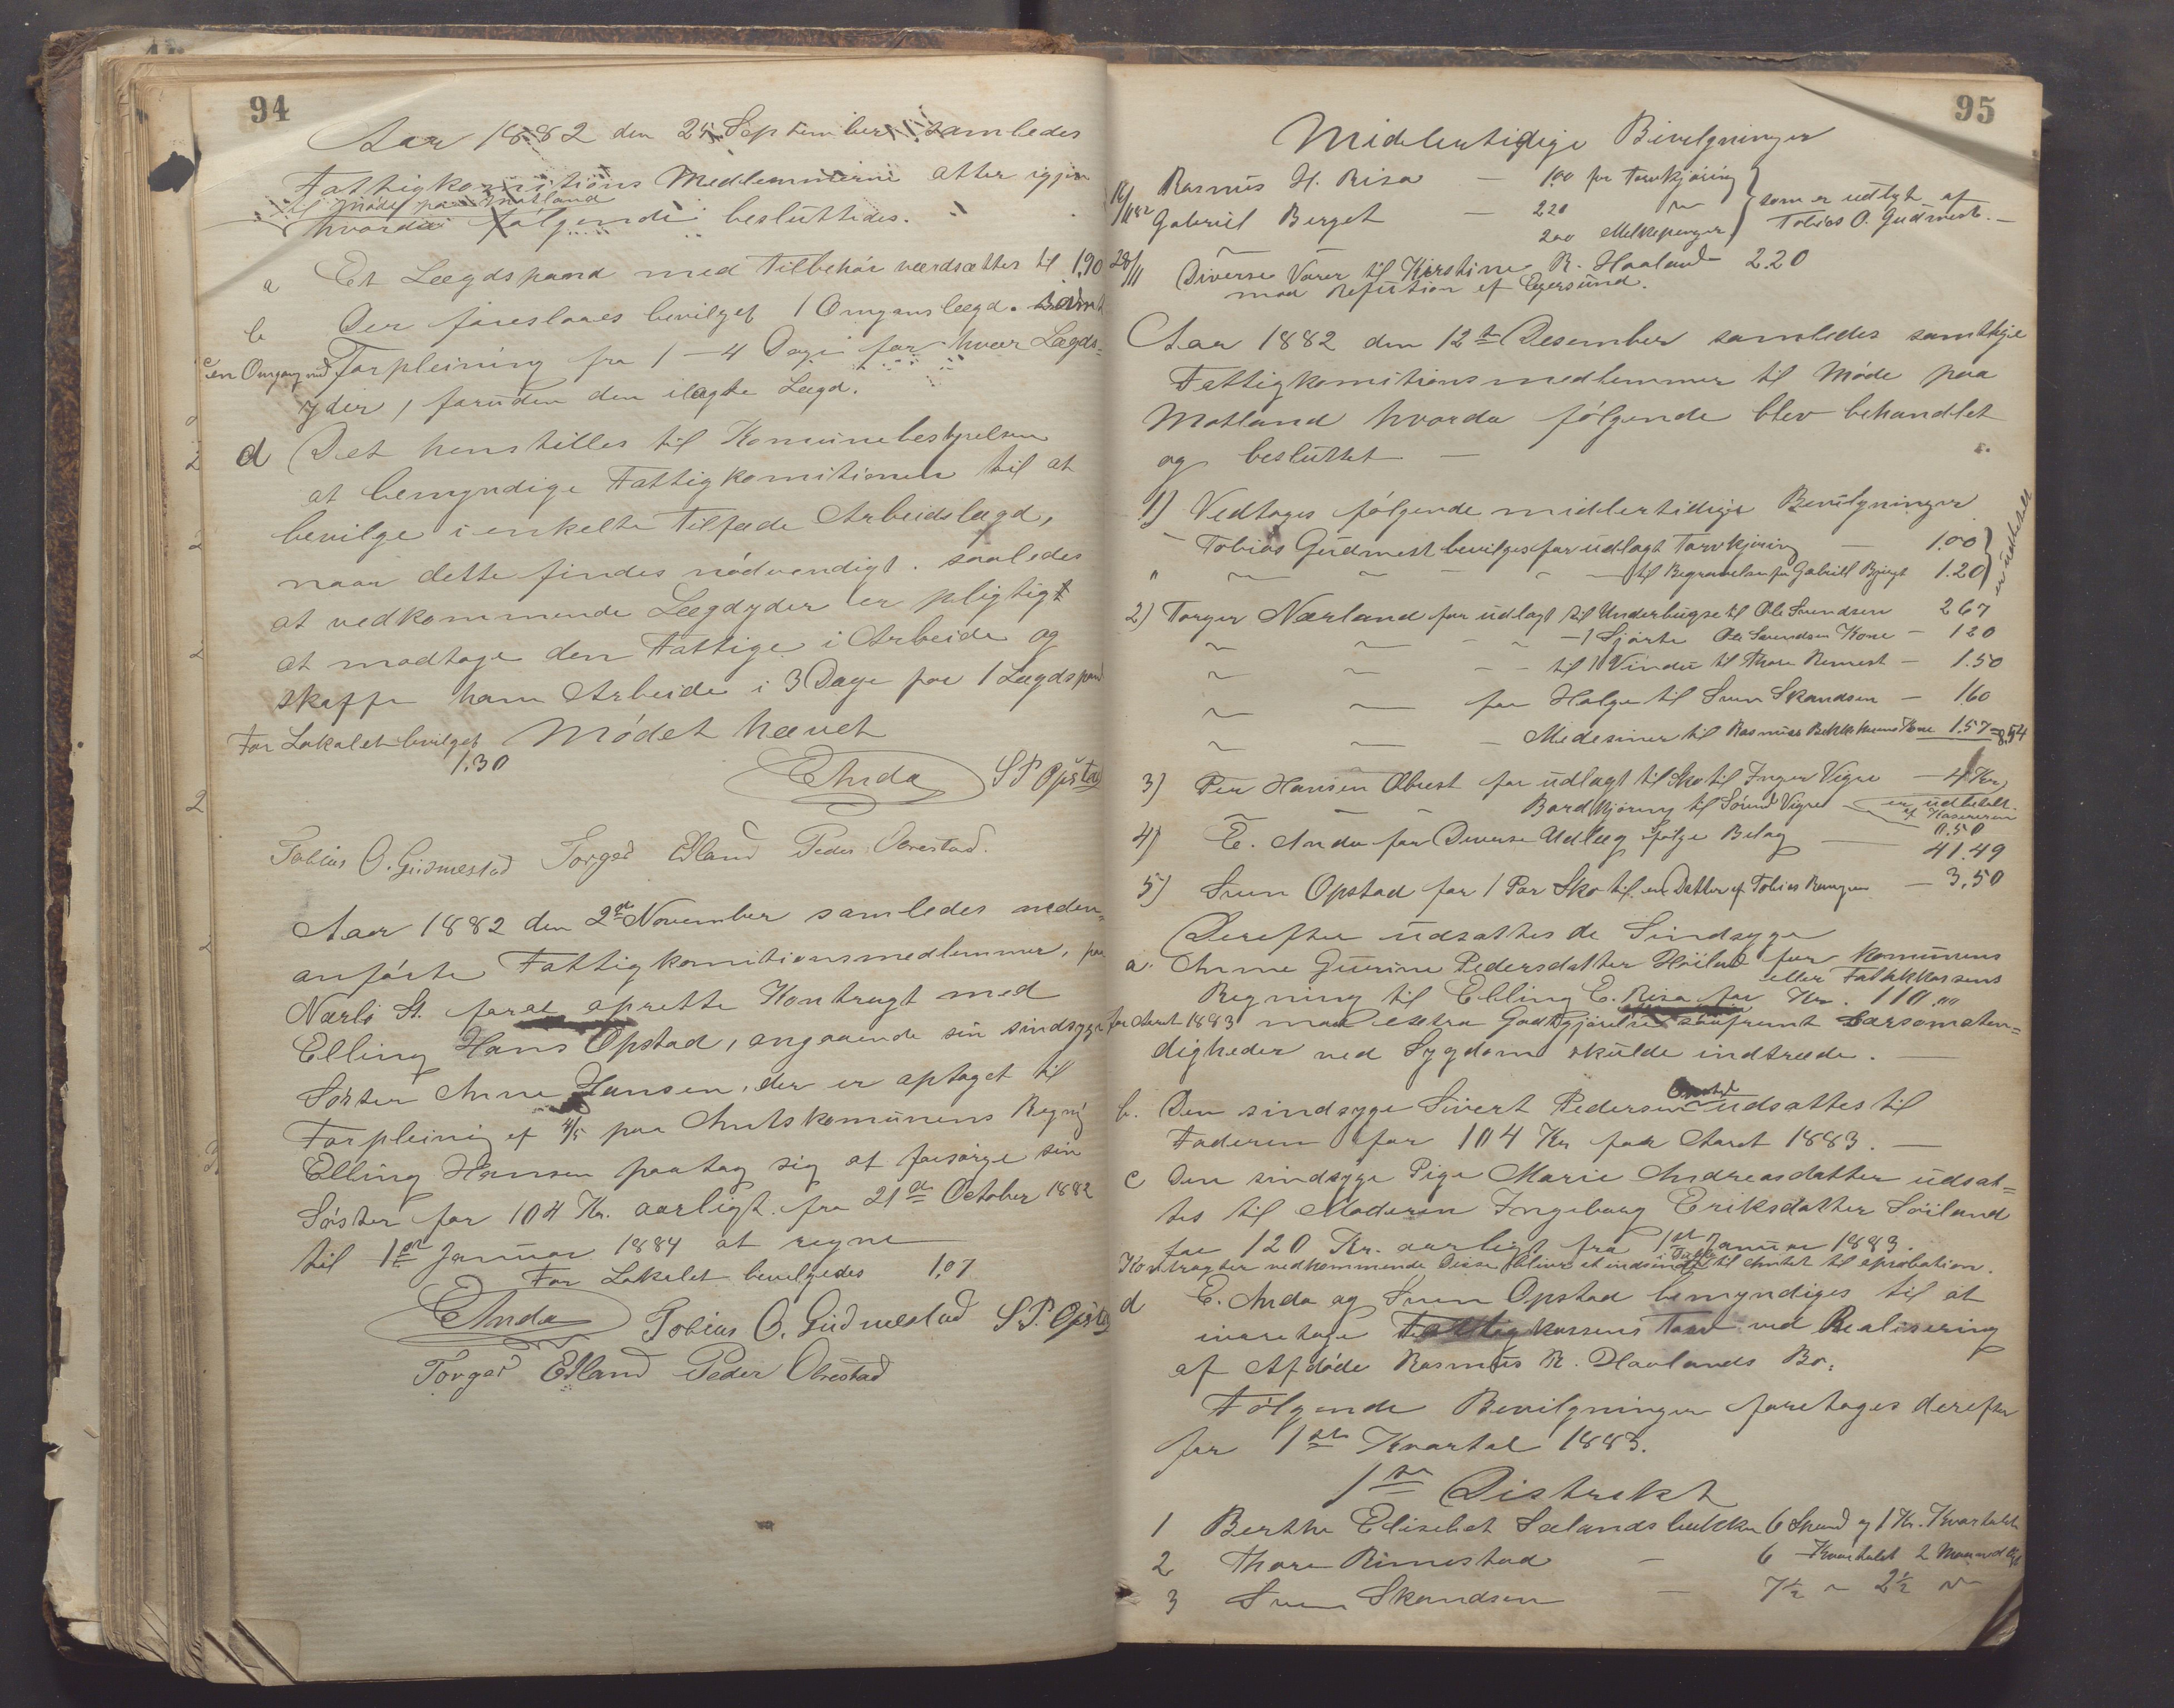 94
Aar 1882 den 25 September samledes
Fattigkomitions Medlemmerne atter igjen
til Møde paa Motland
hvorda følgende besluttedes.
a Et Lægdspand med Tilbehør værdsættes til 1,90
b Der foreslaaes bevilget 1 Omgangslægd. samt
c en Omgang med Forpleining fra 1–4 Dage for hver Lægds=
yder, foruden den ilagte Lægd.
d Det henstilles til Komunebestyrelsen
at bemyndige Fattigkomitionen til at
bevilge i enkelte Tilfæde Arbeidslægd,
naar dette findes nødvendigt. saaledes
at vedkommende Lægdyder er pligtigt
at modtage den Fattige i Arbeide og
skaffe ham Arbeide i 3 Dage for 1 Lægdspand
For Lokalet bevilget Mødet hævet
1,30
E Anda S P Opstad
Tobias O. Gudmestad Torger Edland Peder Obrestad.
Aar 1882 den 2de November samledes neden=
anførte Fattigkomitionsmedlemmer, paa
Nærbø St. for at oprette Kontragt med
Elling Hans Opstad, angaaende sin sindsyge
Søster Anne Hansen, der er optaget til
Forpleining af 4/5 paa Amtskomunens Regnig
Elling Hansen paatog sig at forsørge sin
Søster for 104 Kr. aarligt. fra 21de October 1882
til 1ste Januar 1884 at regne
For Lokalet bevilgedes 1,07
E Anda Tobias O. Gudmestad S P. Opstad
Torger Edland Peder Obrestad
95
Midlertidige Bevilgninger
16/11 82 Rasmus H. Risa — 1.00 for Torvkjøring
Gabriel Berget — 220 som er udlagt af
200 Melkepenger Tobias O. Gudmest. —
28/11 Diverse Varer til Kirstine R. Haaland 2.20
mod Refution af Egersund.
Aar 1882 den 12te Desember samledes samtlige
Fattigkomitionsmedlemmer til Møde paa
Motland hvorda følgende blev behandlet
og besluttet —
1) Vedtoges følgende midlertidige Bevilgninger
Tobias Gudmest bevilges for udlagt Torvkjøring — 1.00
" — til Begravelse for Gabriel Bjerget 1.20
er udbetalt
2) Torger Nærland for udlagt til Underbugse til Ole Svendsen 267
— 1 Sjørte Ole Svendsen Kone — 120
— til 1 Vindu til Thore Rimest — 1.50
— for Halge til Sven Skandsen — 160
— Medesiner til Rasmus Bekkheiens Kone 1.57 = 8,54
3) Per Hansen Obrest for udlagt til Sko til Inger Vigre — 4 Kr
Bordkjøring til Sørine Vigre er udbetalt af Kassereren
0.50
4) E. Anda for Diverse Udlæg ifølge Bilag — 41.49
5) Sven Opstad for 1 Par Sko til en Datter af Tobias — 3,50
Derefter udsattes de Sindsyge
a. Anne Gurine Pedersdatter Høiland for Komunens
eller Fattikkassens
Regning til Elling E. Risa for Kr. 110 "
for Aaret 1883 mod extra Godtgjørelse saafremt særsomsten=
digheder ved Sygdom skulde indtræde. —
b. Den sindsyge Sivert Pedersen Opstad udsattes til
Faderen for 104 Kr for Aaret 1883. —
c Den sindsyge Pige Marie Andreasdatter udsat=
tes til Moderen Ingeborg Eriksdatter Søiland
for 120 Kr. aarligt fra 1ste Januar 1883.
Kontragter vedkommende Disse bliver at indsende til Amtet til aprobation.
d E. Anda og Sven Opstad bemyndiges til at
ivaretage Fattigkassens Tarv ved Realisering
af Afdøde Rasmus R. Haalands Bo.
Følgende Bevilgninger foretoges derefter
for 1ste Kvartal 1883.
1ste Distrekt
1 Berthe Elisebet Sælandsbakken 6 Spand og 1 Kr. Kvartalet
2 Thore Rimestad — 6 Kvartalet 2 Maaned
3 Sven Skandsen — 7½ " 2½ "